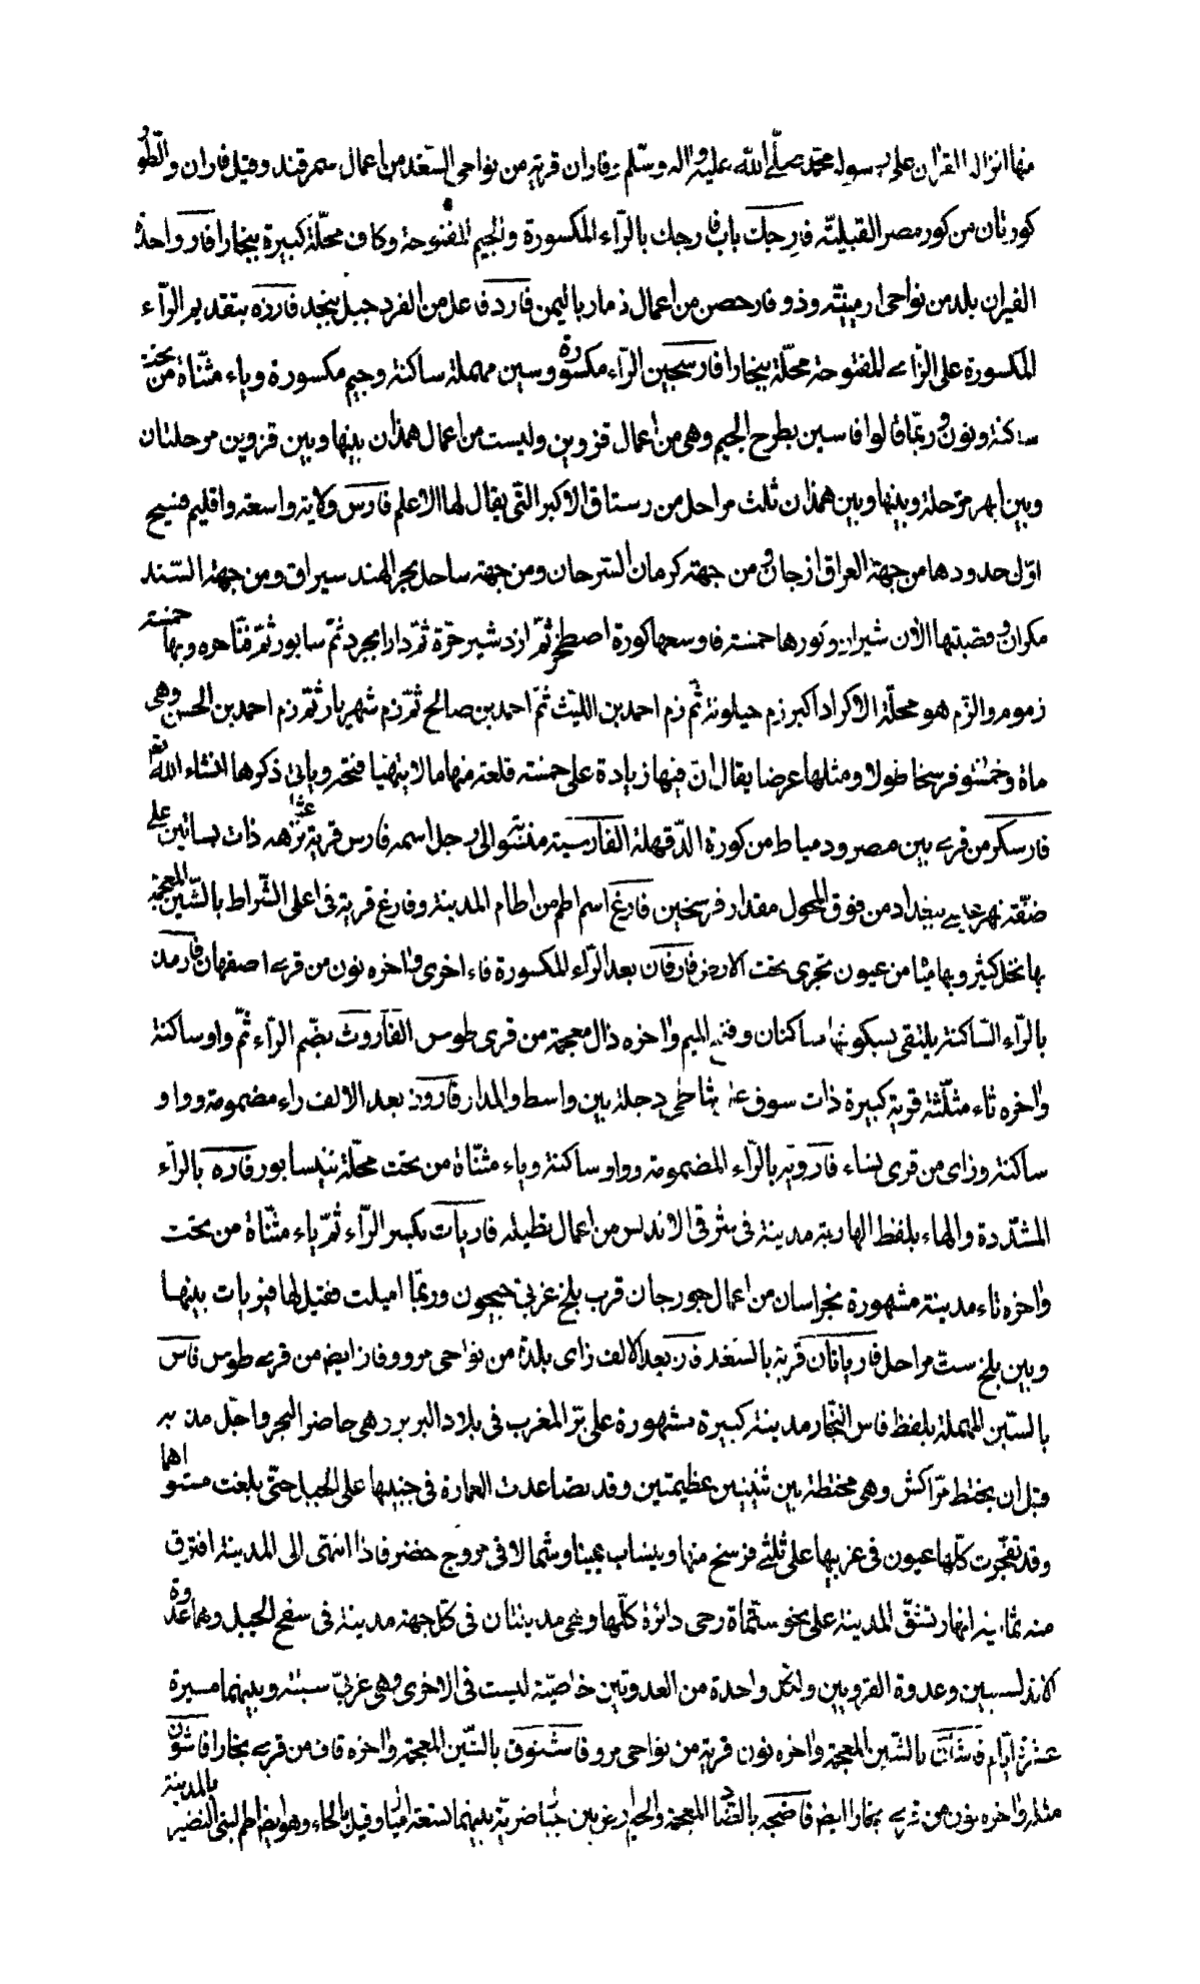 منها انزاله القران على رسوله محمد صلى الله عليه واله وسلم وفاران قرية من نواحى السغد من اعمال سمرقند وقيل فاران والطور
كورتان من كور مصر القبلية فارجك باب فارجك بالراء المكسورة والجيم المفتوحة وكاف محلة كبيرة ببخارا فار واحدة
الفيران بلد من نواحى ارمينية وذو فار حصن من اعمال ذمار باليمن فارد علم من الفرد جبل بنجد فارزه بتقديم الراء
المكسورة على الزاء المفتوحة محلة ببخارا فارسجين الراء مكسورة وسين مهملة ساكنة وجيم مكسورة وياء مثناة من تحت
ساكنة ونون وربما قالوا فاسين بطرح الجيم وهى من اعمال قزوين وليست من اعمال همذان بينها وبين قزوين مرحلتان
وبين ابهر مرحلة وبينها وبين همذان ثلث مراحل من رستاق الاكبر التى يقال لها الاعلم فارس ولاية واسعة واقليم فسيح
اول حدودها من جهة العراق ارجان ومن جهة كرمان السرحان ومن جهة ساحل بحر الهند سيراف ومن جهة السند
مكران وقصبتها الان شيراز وكورها خمسة فاوسعها كورة اصطخر ثم ازدشير خرة ثم دارابجرد ثم سابور ثم قناحره وبها خمسة
زموم والزم هو محلة الاكراد اكبر زم حيلونة ثم زم احمد بن الليث ثم احمد بن صالح ثم زم شهريار ثم زم احمد بن الحسن وهى
ماة وخمسو فرسخا طولا ومثلها عرضا يقال ان فيها زيادة على خمسة قلعة منها مالا يتهيا فتحه وياتى ذكرها انشاء الله تع
فارسكر من قرى بين مصر ودمياط من كورة الدقهلة الفارسية منسوبة الى رجل اسمه فارس قرية غناء نزهه ذات بساتين على
ضفة نهر عيسى ببغداد من فوق المحول مقدار فرسخين فارغ اسم اطم من اطام المدينة وفارغ قرية فى اعلى الشراط بالشين المعجمة
بها نخل كثير وبها مياه من عيون تجرى تحت الارض فارفان بعد الراء المكسورة فاء اخرى واخره نون من قرى اصفهان فارمد
بالراء الساكنة يلتقى بسكونها ساكنان وفتح الميم واخره ذال معجمة من قرى طوس الفاروث بضم الراء ثم واو ساكنة
واخره ثاء مثلثة قرية كبيرة ذات سوق على شاطى دجلة بين واسط والمدار فاروز بعد الالف راء مضمومة وواو
ساكنة وزاى من قرى نساء فارويه بالراء المضمومة وواو ساكنة وياء مثناة من تحت محلة بنيسابور فاره بالراء
المشددة والهاء بلفظ الهاربة مدينة فى شرقى الاندلس من اعمال تطيله فارياب بكسر الراء ثم ياء مثناة من تحت
واخره باء مدينة مشهورة بخراسان من اعمال جورجان قرب بلخ غربى جيحون وربما اميلت فقيل لها فيرياب بينها
وبين بلخ ست مراحل فاريانان قرية بالسغد فاز بعد الالف زاى بلدة من نواحى مرو وفاز ايضا من قرى طوس فاس
بالسين المهملة بلفظ فاس النجار مدينة كبيرة مشهورة على بر المغرب فى بلاد البربر وهى حاضر البحر واجل مدنه
قبل ان يختط مراكش وهى مختطة بين ثنيتين عظيمتين وقد تصاعدت العمارة فى جنبيها على الجبل حتى بلغت مستواها
وقد تفجرت كلها عيون فى غربيها على ثلثى فرسخ منها وينساب يمينا وشمالا فى مروج خضر فاذا انتهى الى المدينة افترق
منه ثمانية انهار تشق المدينة على نحو ستماة رحى دائرة كلها وهى مدينتان فى كل جهة مدينة فى سفح الجبل وهما عدوة
الاندلسيين وعدوة القرويين ولكل واحدة من العدوتين خاصية ليست فى الاخرى وهى غربى سبتة وبينهما مسيرة
عشرة ايام فاشان بالشين المعجمة واخره نون قرية من نواحى مرو فاشنوق بالشين المعجمة واخره قاف من قرى بخارا فاشون
مثله واخره نون من قرى بخارا ايضا فاضجه بالضاد المعجمة والجيم ارض بين جبا ضرية بينهما تسعة اميا وقيل بالحاء وهو ايضا اطم لبنى النضير بالمدينة